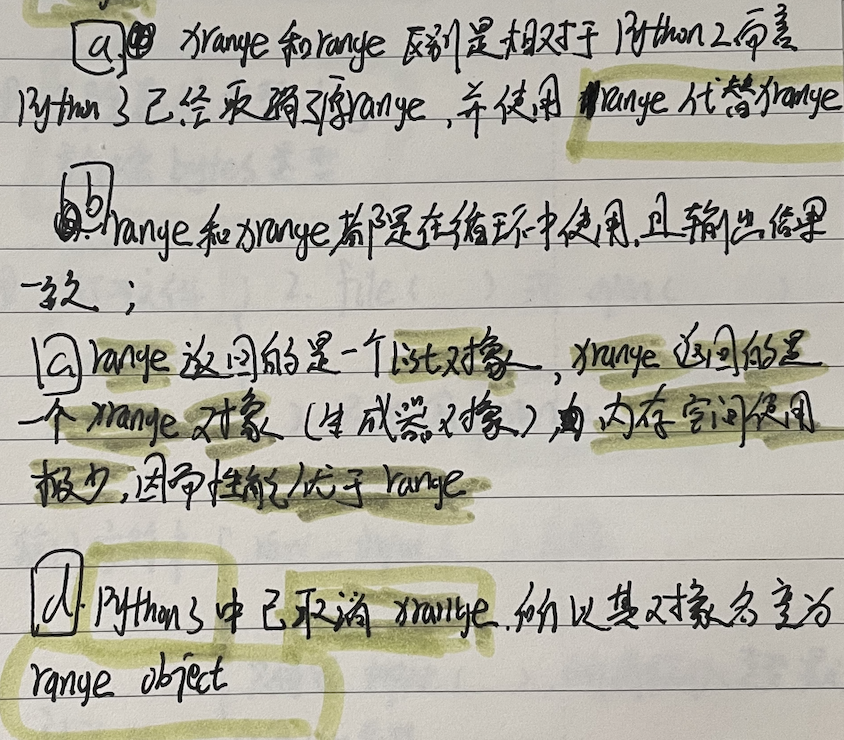 a. xrange和range区别是相对于Python2而言
Python3已经取消了原range,并使用range代替xrange
b. range和xrange都是在循环中使用,且输出结果
一致;
a range返回的是一个list对象,xrange返回的是
一个xrange对象(生成器对象),内存空间使用
极少,因而性能优于range
d. Python3中已取消xrange.所以其对象名变为
range object